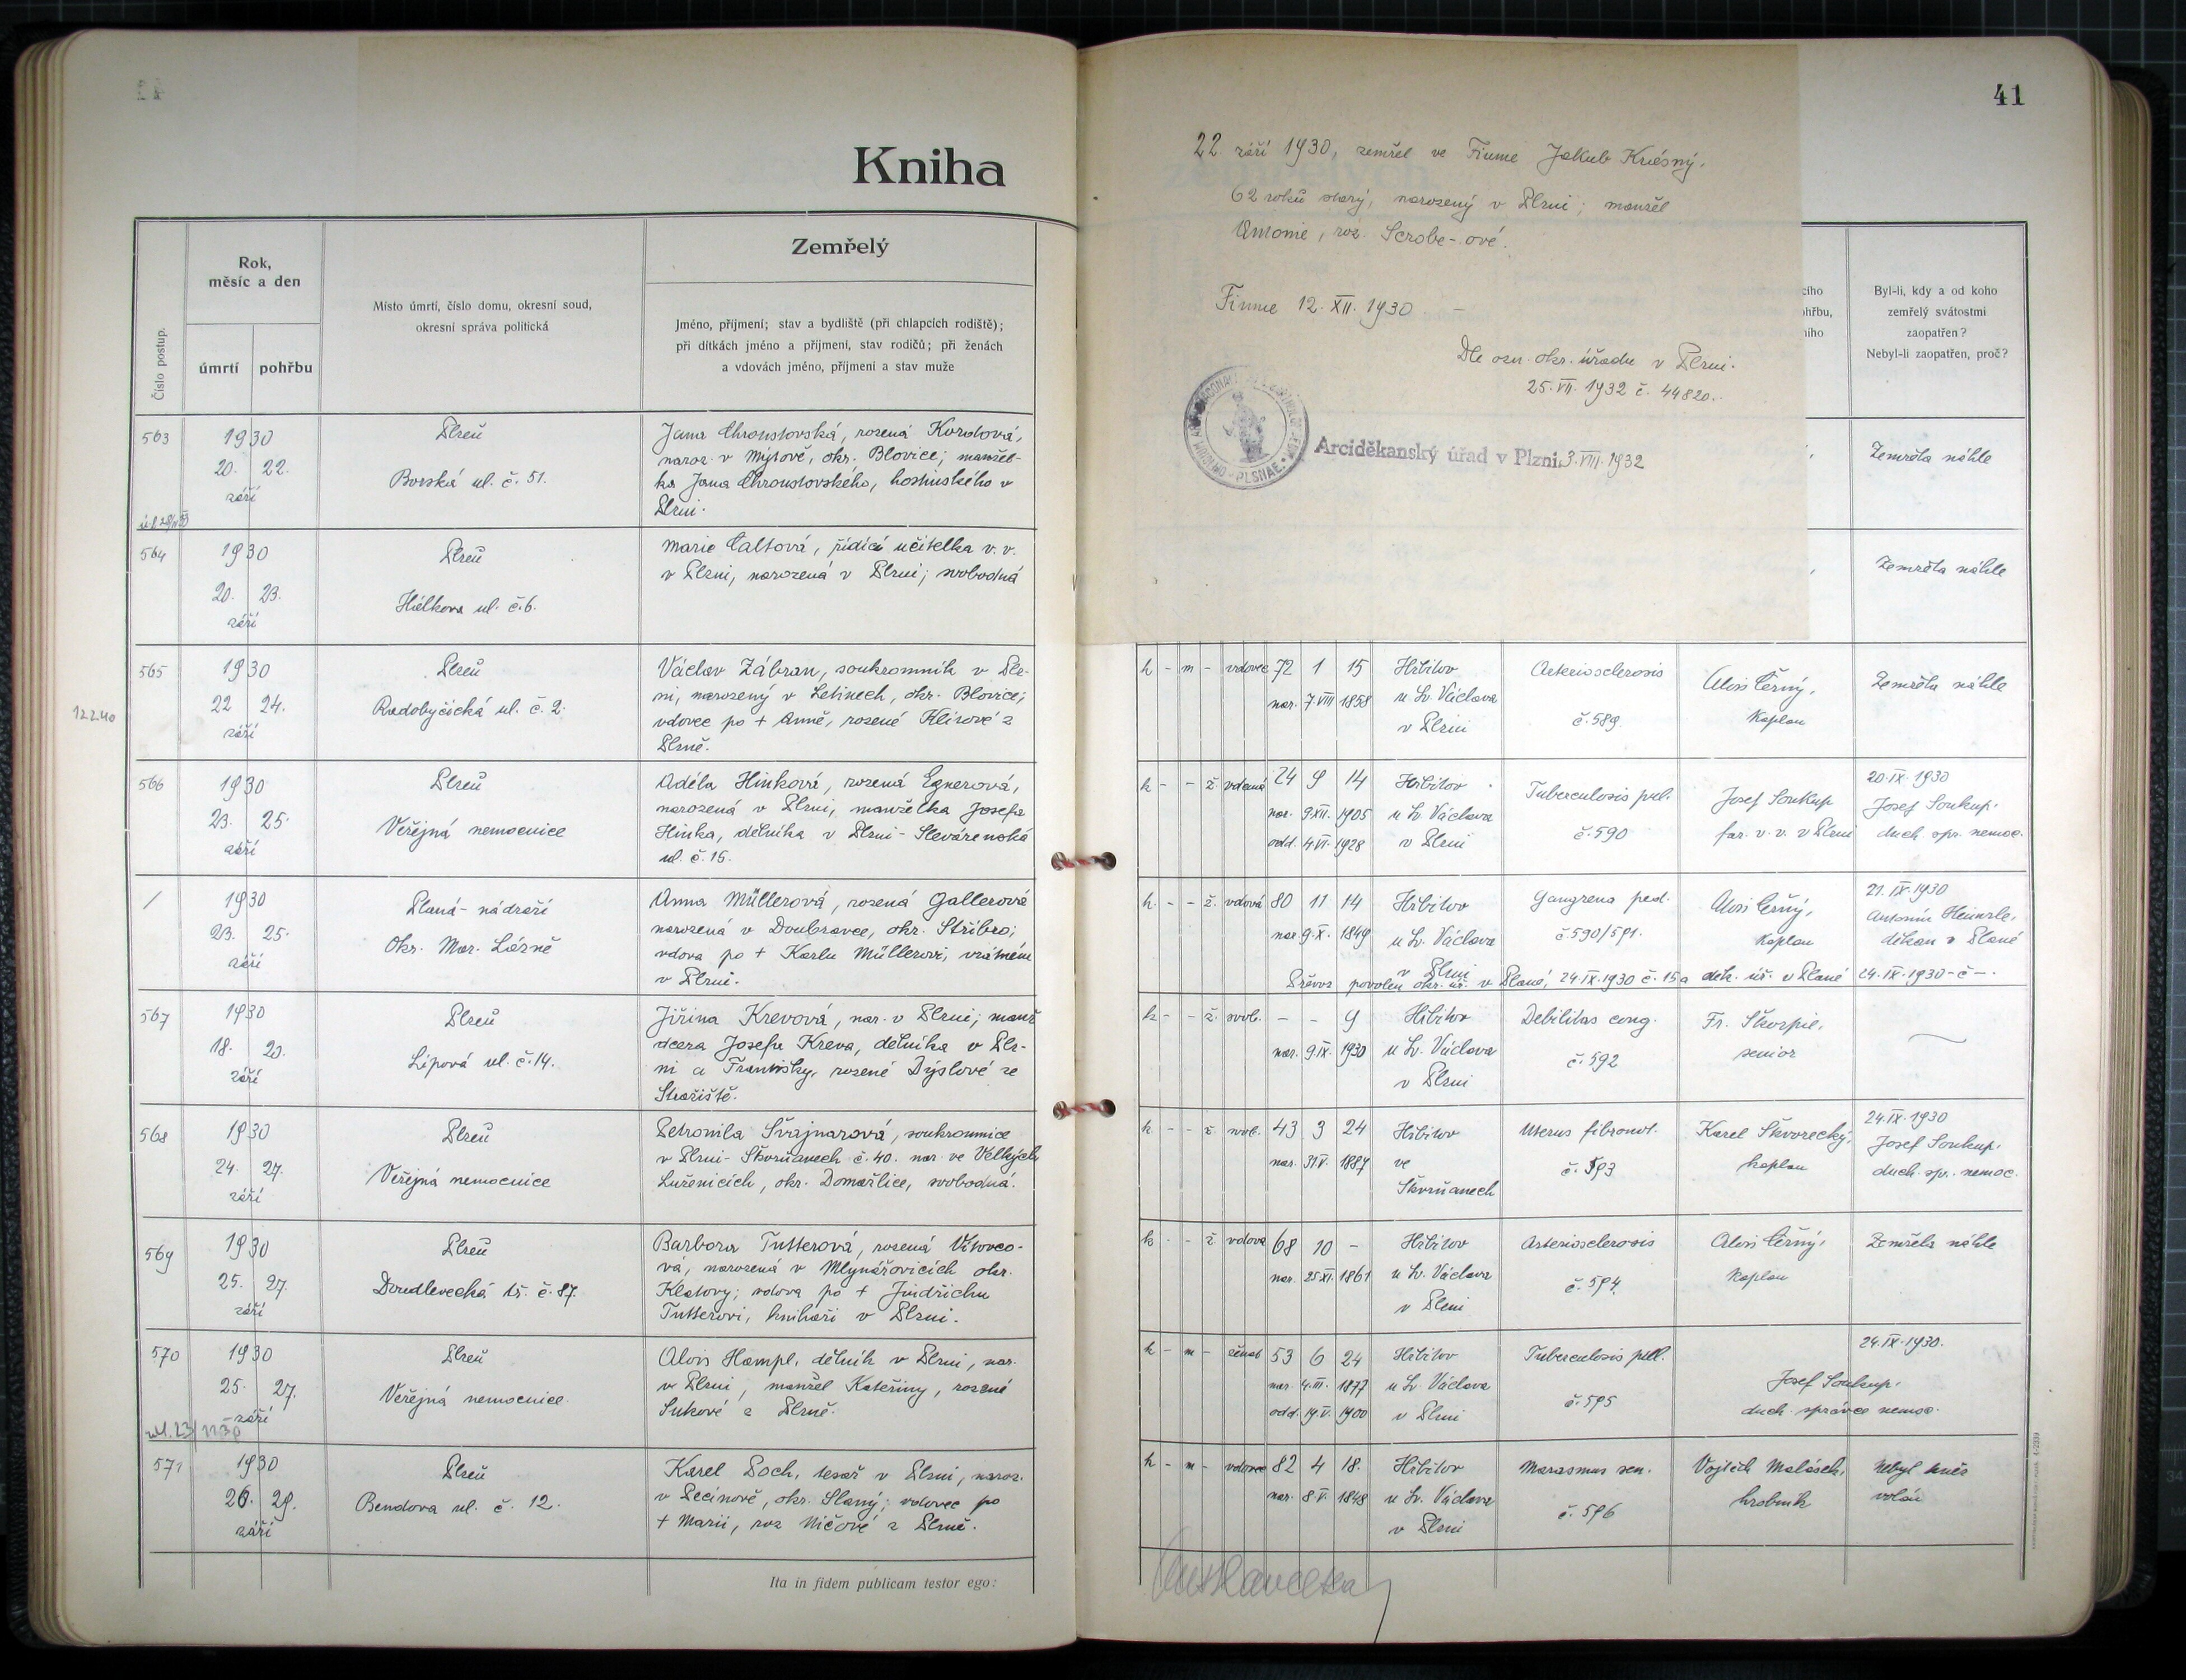 Kniha
41
Číslo postup.
Rok,
měsíc a den
úmrtí
pohřbu
Místo úmrtí, číslo domu, okresní soud,
okresní správa politická
Zemřelý
Jméno, příjmení; stav a bydliště (při chlapcích rodiště);
při dítkách jméno a příjmení, stav rodičů; při ženách
a vdovách jméno, příjmení a stav muže
563
1930
20. 22.
září
Plzeň
Borská ul. č. 51.
Jana Chroustovská, rozená Kordová,
naroz. v Mýtově, okr. Blovice; manžel-
ka Jana Chroustovského, hostinského v
Plzni.
564
1930
20. 23.
září
Plzeň
Hálkova ul. č. 6.
Marie Caltová, řídící učitelka v. v.
v Plzni, narozená v Plzni; svobodná
565
12240
1930
22 24.
září
Plzeň
Radobyčická ul. č. 2.
Václav Zábran, soukromník v Plz-
ni, narozený v Letinech, okr. Blovice;
vdovec po + Anně, rozené Klírové z
Plzně.
566
1930
23. 25.
září
Plzeň
Veřejná nemocnice
Adéla Hinková, rozená Egnerová,
narozená v Plzni, manželka Josefa
Hinka, dělníka v Plzni - Slevárenská
ul. č. 15.
/
1930
23. 25.
září
Planá - nádraží
Okr. Mar. Lázně
Anna Müllerová, rozená Gallerová
narozená v Doubravce, okr. Stříbro;
vdova po + Karlu Müllerovi, vrátném
v Plzni.
567
1930
18. 20.
září
Plzeň
Lípová ul. č. 14.
Jiřina Krevová, nar. v Plzni; manž
dcera Josefa Kreva, dělníka v Plz-
ni a Františky, rozené Dýslové ze
Stražiště.
568
1930
24. 27.
září
Plzeň
Veřejná nemocnice
Petronila Švajnarová, soukromnice
v Plzni - Škvrňanech č. 40. nar. ve Velkých
Luženicích, okr. Domažlice, svobodná.
569
1930
25. 27.
září
Plzeň
Doudlevecká tř. č. 87.
Barbora Tutterová, rozená Vítovco-
vá, narozená v Mlynářovicích okr.
Klatovy; vdova po + Jindřichu
Tutterovi, knihaři v Plzni.
570
1930
25. 27.
září
Plzeň
Veřejná nemocnice.
Alois Hampl, dělník v Plzni, nar.
v Plzni, manžel Kateřiny, rozené
Sukové z Plzně.
571
1930
26. 29.
září
Plzeň
Bendova ul. č. 12.
Karel Poch, tesař v Plzni, naroz.
v Pecínově, okr. Slaný; vdovec po
+ Marii, roz Mičové z Plzně.
Ita in fidem publicam testor ego:
22 září 1930, zemřel ve Fiume Jakub Krésný.
62 roků starý, narozený v Plzni; manžel
Antonie, roz. Scrobe-ové.
Fiume 12. XII. 1930 —
Dle ozn. okr. úřadu v Plzni.
25. VII. 1932 č. 44820.
Arciděkanský úřad v Plzni, 3. VIII. 1932
Byl-li, kdy a od koho
zemřelý svátostmi
zaopatřen?
Nebyl-li zaopatřen, proč?
Zemřela náhle
Zemřela náhle
k - m - vdovec 72 1 15
nar. 7. VIII 1858
Hřbitov
u Sv. Václava
v Plzni
Arteriosclerosis
č. 589.
Alois Černý,
kaplan
Zemřela náhle
k - - ž. vdaná 24 9 14
nar. 9. XII. 1905
odd. 4. VI. 1928
Hřbitov
u Sv. Václava
v Plzni
Tuberculosis pul.
č. 590
Josef Soukup
far. v. v. v Plzni
20. IX. 1930
Josef Soukup.
duch. spr. nemoc.
k. - - ž. vdová 80 11 14
nar. 9. X. 1849
Hřbitov
u Sv. Václava
v Plzni
Gangrena ped.
č. 590/591.
Alois Černý,
kaplan
21. IX. 1930
Antonín Heinzle,
děkan v Plané
Převoz povolen okr. úř. v Plané, 24. IX. 1930 č. 15 a děk. úř. v Plané 24. IX. 1930 - č -.
k - - ž. svob. - - 9
nar. 9. IX. 1930
Hřbitov
u Sv. Václava
v Plzni
Debilitas cong.
č. 592
Fr. Škorpil,
senior
k - - ž. svob. 43 3 24
nar. 31 V. 1887
Hřbitov
ve
Škvrňanech
Uterus fibromat.
č. 593
Karel Škvorecký,
kaplan
24. IX. 1930
Josef Soukup.
duch. sp. nemoc.
k - - ž vdova 68 10 -
nar. 25. XI. 1861
Hřbitov
u Sv. Václava
v Plzni
Arteriosclerosis
č. 594.
Alois Černý,
kaplan
Zemřela náhle
k - m - ženat 53 6 24
nar. 4. III. 1877
odd. 19. V. 1900
Hřbitov
u Sv. Václava
v Plzni
Tuberculosis pull.
č. 595
24. IX. 1930.
Josef Soukup.
duch. správce nemoc.
k - m - vdovec 82 4 18.
nar. 8 V. 1848
Hřbitov
u Sv. Václava
v Plzni
Marasmus sen.
č. 596
Vojtěch Malásek,
hrobník
Nebyl kněz
volán